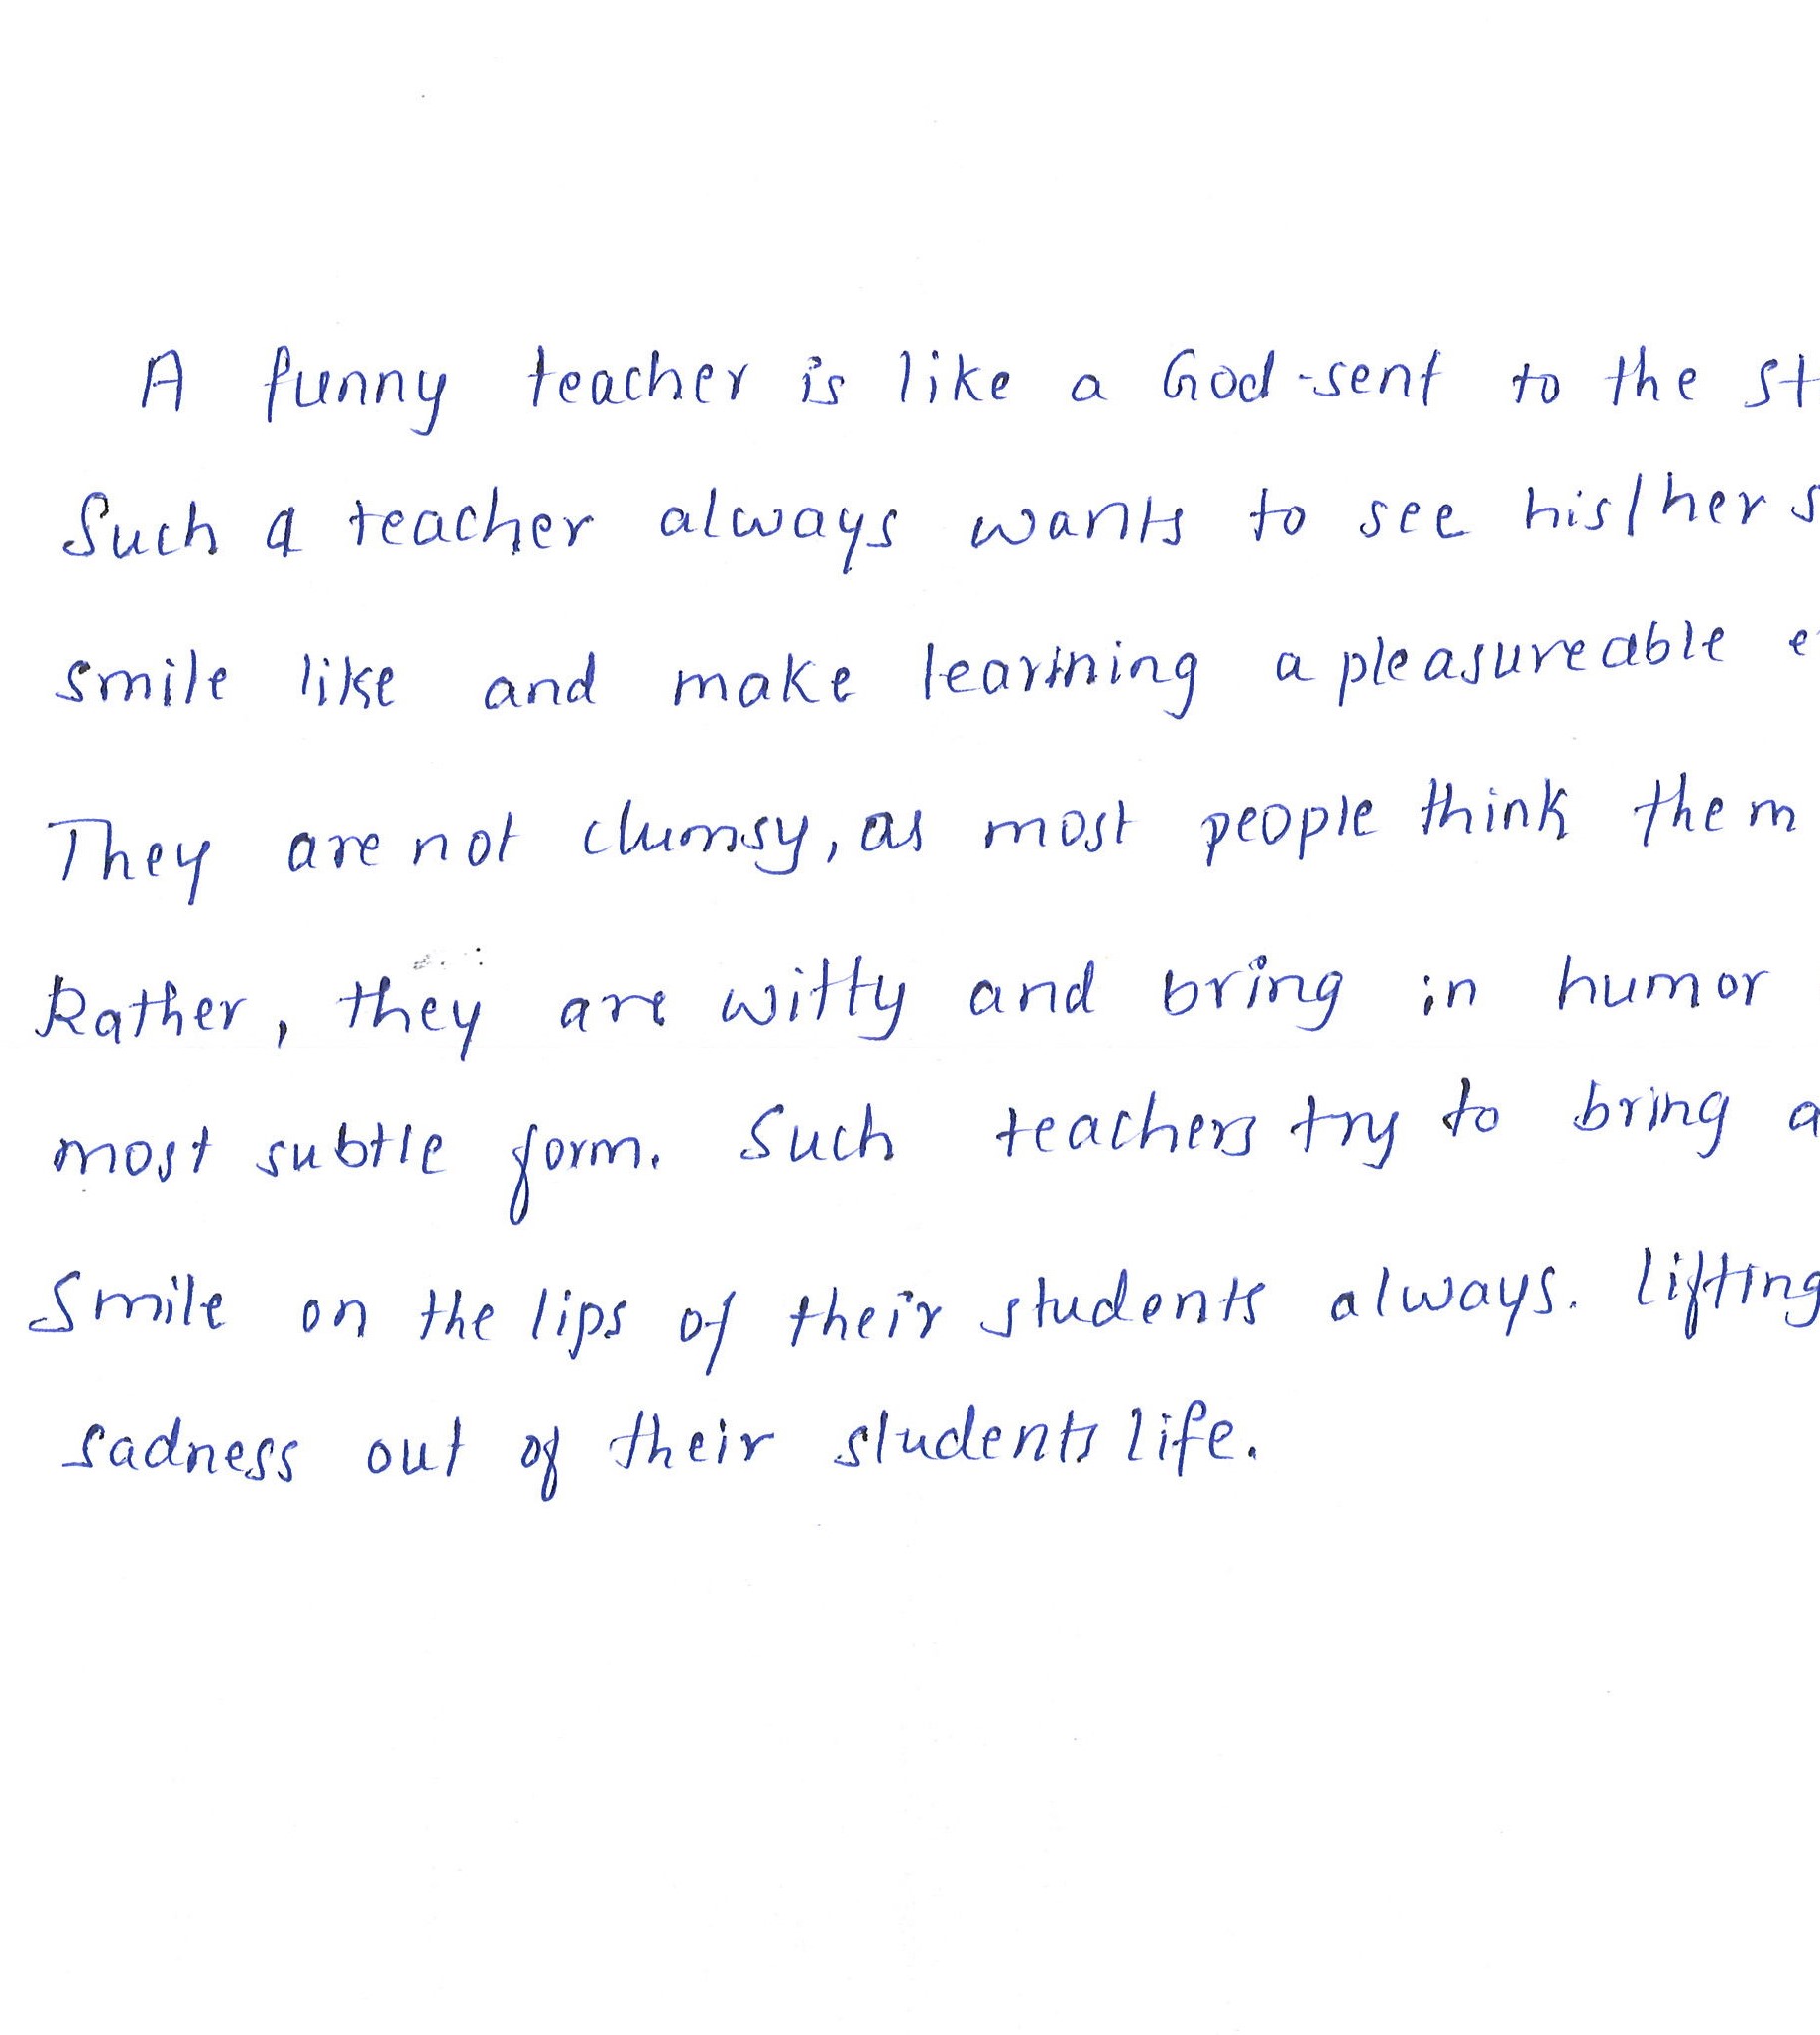 A funny teacher is like a God-sent to the st
Such a teacher always wants to see his/her s
smile like and make learning a pleasureable e
They are not clumsy, as most people think them
Rather, they are witty and bring in humor
most subtle form. Such teachers try to bring a
Smile on the lips of their students always. lifting
sadness out of their students life.